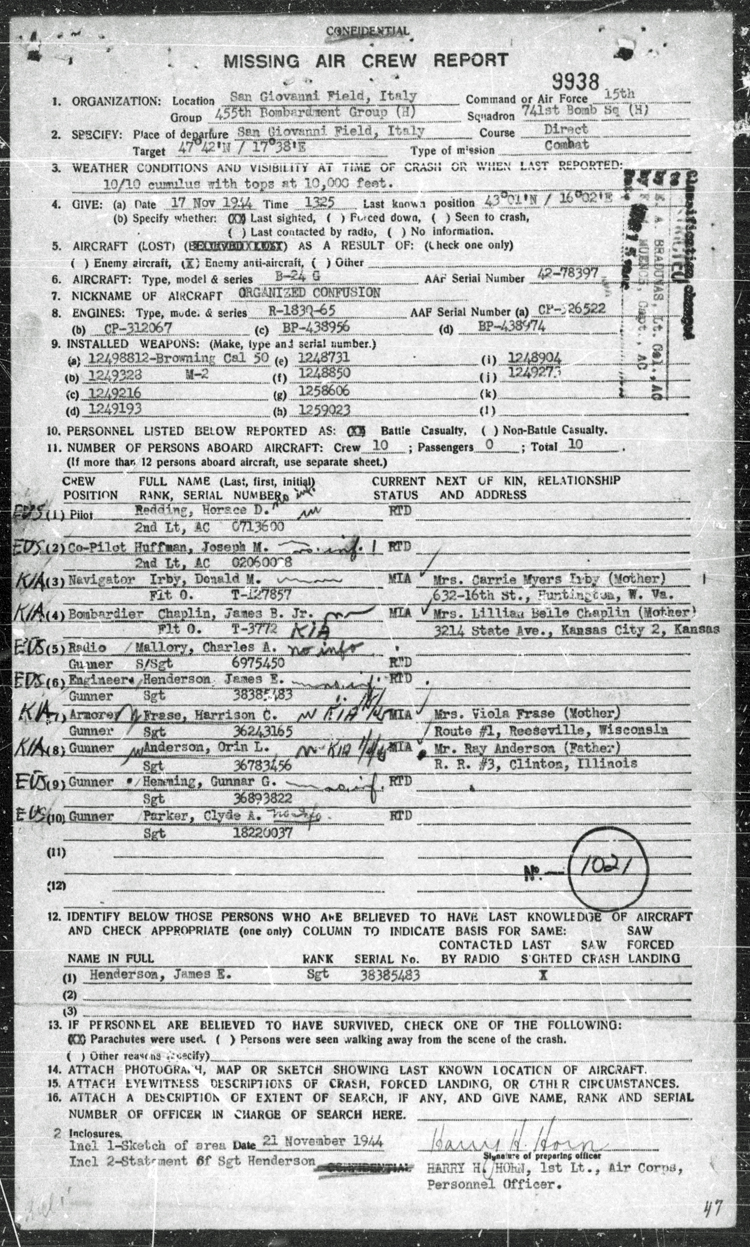 CONFIDENTIAL
MISSING AIR CREW REPORT
9938
1. ORGANIZATION: Location San Giovanni Field, Italy Command or Air Force 15th
Group 455th Bombardment Group (H) Squadron 741st Bomb Sq (H)
2. SPECIFY: Place of departure San Giovanni Field, Italy Course Direct
Target 47°42'N / 17°38'E Type of mission Combat
3. WEATHER CONDITIONS AND VISIBILITY AT TIME OF CRASH OR WHEN LAST REPORTED:
10/10 cumulus with tops at 10,000 feet.
4. GIVE: (a) Date 17 Nov 1944 Time 1325 Last known position 43°01'N / 16°02'E
(b) Specify whether: (XX) Last sighted, ( ) Forced down, ( ) Seen to crash,
( ) Last contacted by radio, ( ) No information.
5. AIRCRAFT (LOST) (BELIEVED LOST) AS A RESULT OF: (Check one only)
( ) Enemy aircraft, (X) Enemy anti-aircraft, ( ) Other
6. AIRCRAFT: Type, model & series B-24 G AAF Serial Number 42-78397
7. NICKNAME OF AIRCRAFT ORGANIZED CONFUSION
8. ENGINES: Type, mode. & series R-1830-65 AAF Serial Number (a) CP-326522
(b) CP-312067 (c) BP-438956 (d) BP-438974
9. INSTALLED WEAPONS: (Make, type and serial number.)
(a) 12498812-Browning Cal 50 (e) 1248731 (i) 1248904
(b) 1249328 M-2 (f) 1248850 (j) 1249273
(c) 1249216 (g) 1258606 (k)
(d) 1249193 (h) 1259023 (l)
Classification changed
to
E. A. BRADUNAS, Lt. Col., AC
Capt., AC
Date
10. PERSONNEL LISTED BELOW REPORTED AS: (XX) Battle Casualty, ( ) Non-Battle Casualty.
11. NUMBER OF PERSONS ABOARD AIRCRAFT: Crew 10 ; Passengers 0 ; Total 10 .
(If more than 12 persons aboard aircraft, use separate sheet.)
CREW FULL NAME (Last, first, initial) CURRENT NEXT OF KIN, RELATIONSHIP
POSITION RANK, SERIAL NUMBER no inf. STATUS AND ADDRESS
EUS (1) Pilot Redding, Horace D. RTD
2nd Lt, AC 0713600
EUS (2) Co-Pilot Huffman, Joseph M. no inf. RTD
2nd Lt, AC
KIA (3) Navigator Irby, Donald M. MIA Mrs. Carrie Myers Irby (Mother)
Flt O. T-127857 632-16th St., Huntington, W. Va.
KIA (4) Bombardier Chaplin, James B. Jr. MIA Mrs. Lillian Belle Chaplin (Mother)
Flt O. T-3772 KIA 3214 State Ave., Kansas City 2, Kansas
EUS (5) Radio Mallory, Charles A. no info
Gunner S/Sgt 6975450 RTD
EUS (6) Engineer Henderson James E. RTD
Gunner Sgt 38385483
KIA (7) Armorer Frase, Harrison C. KIA MIA Mrs. Viola Frase (Mother)
Gunner Sgt 36243165 Route #1, Reeseville, Wisconsin
KIA (8) Gunner Anderson, Orin L. KIA MIA Mr. Ray Anderson (Father)
Sgt 36783456 R. R. #3, Clinton, Illinois
EUS (9) Gunner Hemming, Gunnar G. no inf. RTD
Sgt 36893822
EUS (10) Gunner Parker, Clyde A. no info. RTD
Sgt 18220037
(11)
(12)
No. — 1021
12. IDENTIFY BELOW THOSE PERSONS WHO ARE BELIEVED TO HAVE LAST KNOWLEDGE OF AIRCRAFT
AND CHECK APPROPRIATE (one only) COLUMN TO INDICATE BASIS FOR SAME: SAW
CONTACTED LAST SAW FORCED
NAME IN FULL RANK SERIAL No. BY RADIO SIGHTED CRASH LANDING
(1) Henderson, James E. Sgt 38385483 X
(2)
(3)
13. IF PERSONNEL ARE BELIEVED TO HAVE SURVIVED, CHECK ONE OF THE FOLLOWING:
(XX) Parachutes were used. ( ) Persons were seen walking away from the scene of the crash.
( ) Other reasons (specify)
14. ATTACH PHOTOGRAPH, MAP OR SKETCH SHOWING LAST KNOWN LOCATION OF AIRCRAFT.
15. ATTACH EYEWITNESS DESCRIPTIONS OF CRASH, FORCED LANDING, OR OTHER CIRCUMSTANCES.
16. ATTACH A DESCRIPTION OF EXTENT OF SEARCH, IF ANY, AND GIVE NAME, RANK AND SERIAL
NUMBER OF OFFICER IN CHARGE OF SEARCH HERE.
2 Inclosures.
Incl 1-Sketch of area Date 21 November 1944 Harry H. Horn
Signature of preparing officer
Incl 2-Statment of Sgt Henderson CONFIDENTIAL HARRY H. HORN, 1st Lt., Air Corps,
Personnel Officer.
47